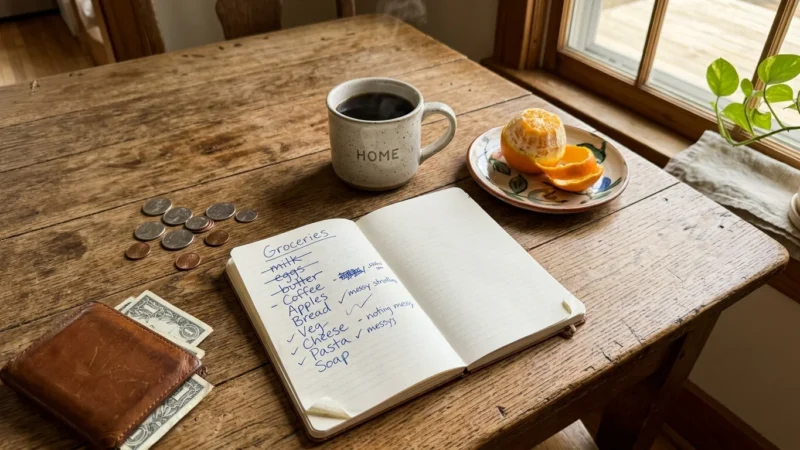 HOME
Groceries
milk
eggs
butter
- Coffee
Apples
Bread ✓ messy
✓ Veg ✓✓
✓ Cheese - noting messy
✓ Pasta ✓ messy
Soap